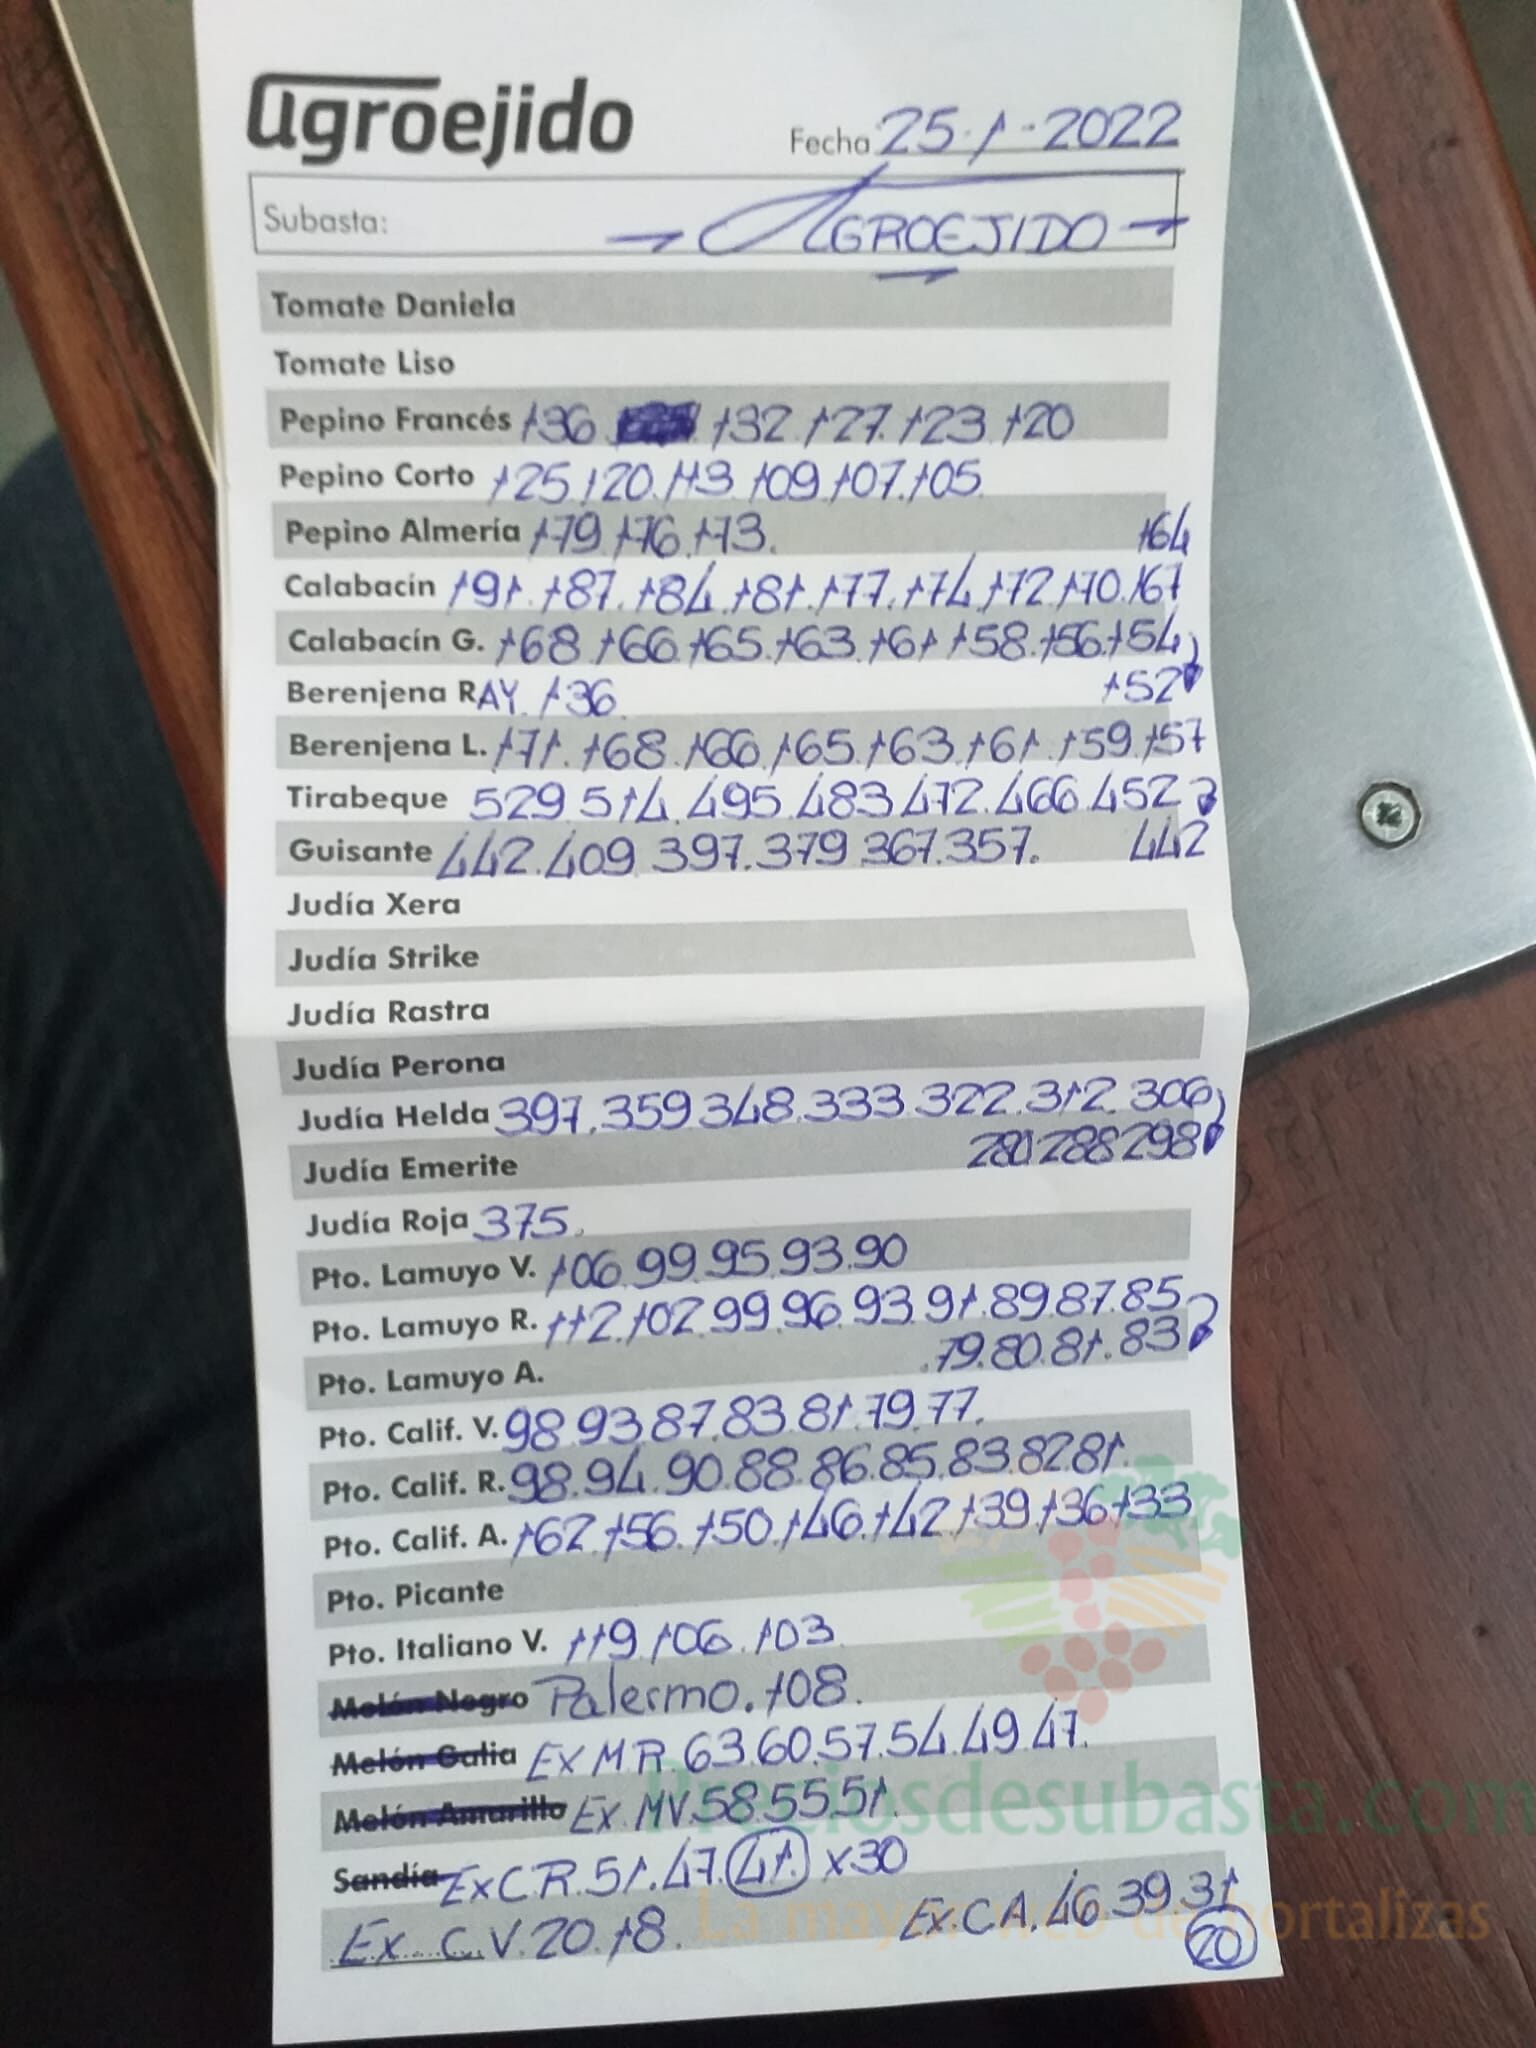 agroejido
Fecha 25-1-2022
Subasta: AGROEJIDO
Tomate Daniela
Tomate Liso
Pepino Francés 136 132.127.123.120
Pepino Corto 125.120.113.109.107.105
Pepino Almería 179.176.173.
164
Calabacín 191.187.184.181.177.174.172.170.167
Calabacín G. 168.166.165.163.161.158.156.154
152
Berenjena RAY. 136
Berenjena L. 171.168.166.165.163.161.159.157
Tirabeque 529.514.495.483.472.466.452
442
Guisante 442.409.397.379.367.357.
Judía Xera
Judía Strike
Judía Rastra
Judía Perona
Judía Helda 397.359.348.333.322.312.306
280.288.298
Judía Emerite
Judía Roja 375.
Pto. Lamuyo V. 106.99.95.93.90
Pto. Lamuyo R. 112.102.99.96.93.91.89.87.85
79.80.81.83
Pto. Lamuyo A.
Pto. Calif. V. 98.93.87.83.81.79.77.
Pto. Calif. R. 98.94.90.88.86.85.83.82.81.
Pto. Calif. A. 162.156.150.146.142.139.136.133
Pto. Picante
Pto. Italiano V. 119.106.103
Melón Negro Palermo.108.
Melón Galia Ex M.R. 63.60.57.54.49.47.
Melón Amarillo Ex. MV.58.55.51.
Preciosdesubasta.com
Sandía Ex C.R. 51.47.41. x30
La mayor web de hortalizas
Ex. C.V. 20.18. Ex. C A. 46.39.31
20